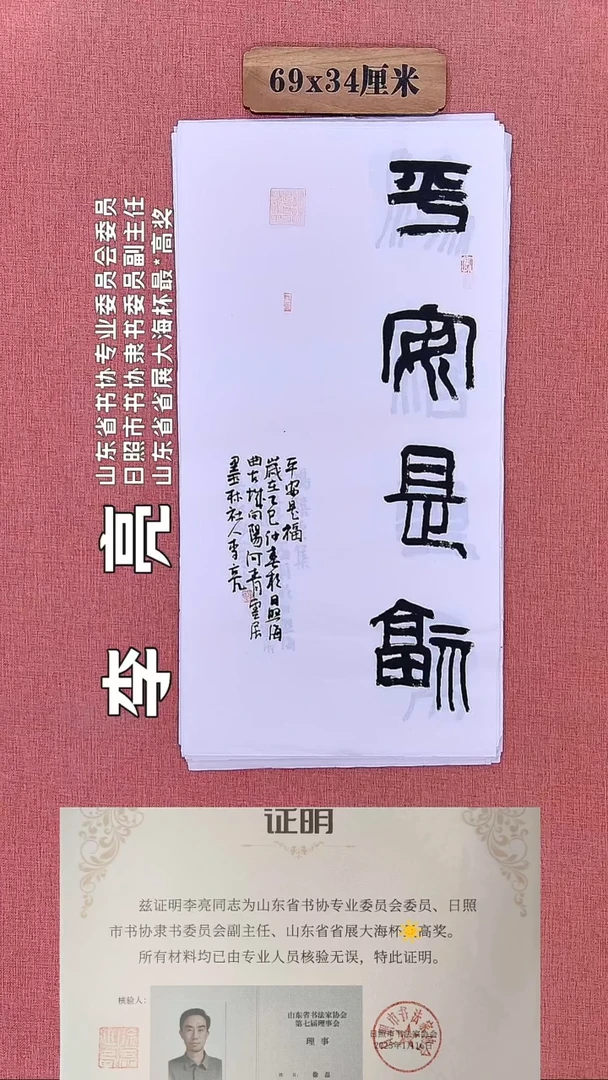 69x34厘米
平安是福
平安是福
歲在乙巳仲春於日照海
曲古城向陽河青雲居
墨林社人李亮
山东省书协专业委员会委员
日照市书协隶书委员副主任
山东省省展大海杯最*高奖
李亮
证明
兹证明李亮同志为山东省书协专业委员会委员、日照
市书协隶书委员会副主任、山东省省展大海杯高奖。
所有材料均已由专业人员核验无误，特此证明。
核验人：
山东省书法家协会
第七届理事会
理事
日照市书法家协会
2025年1月16日